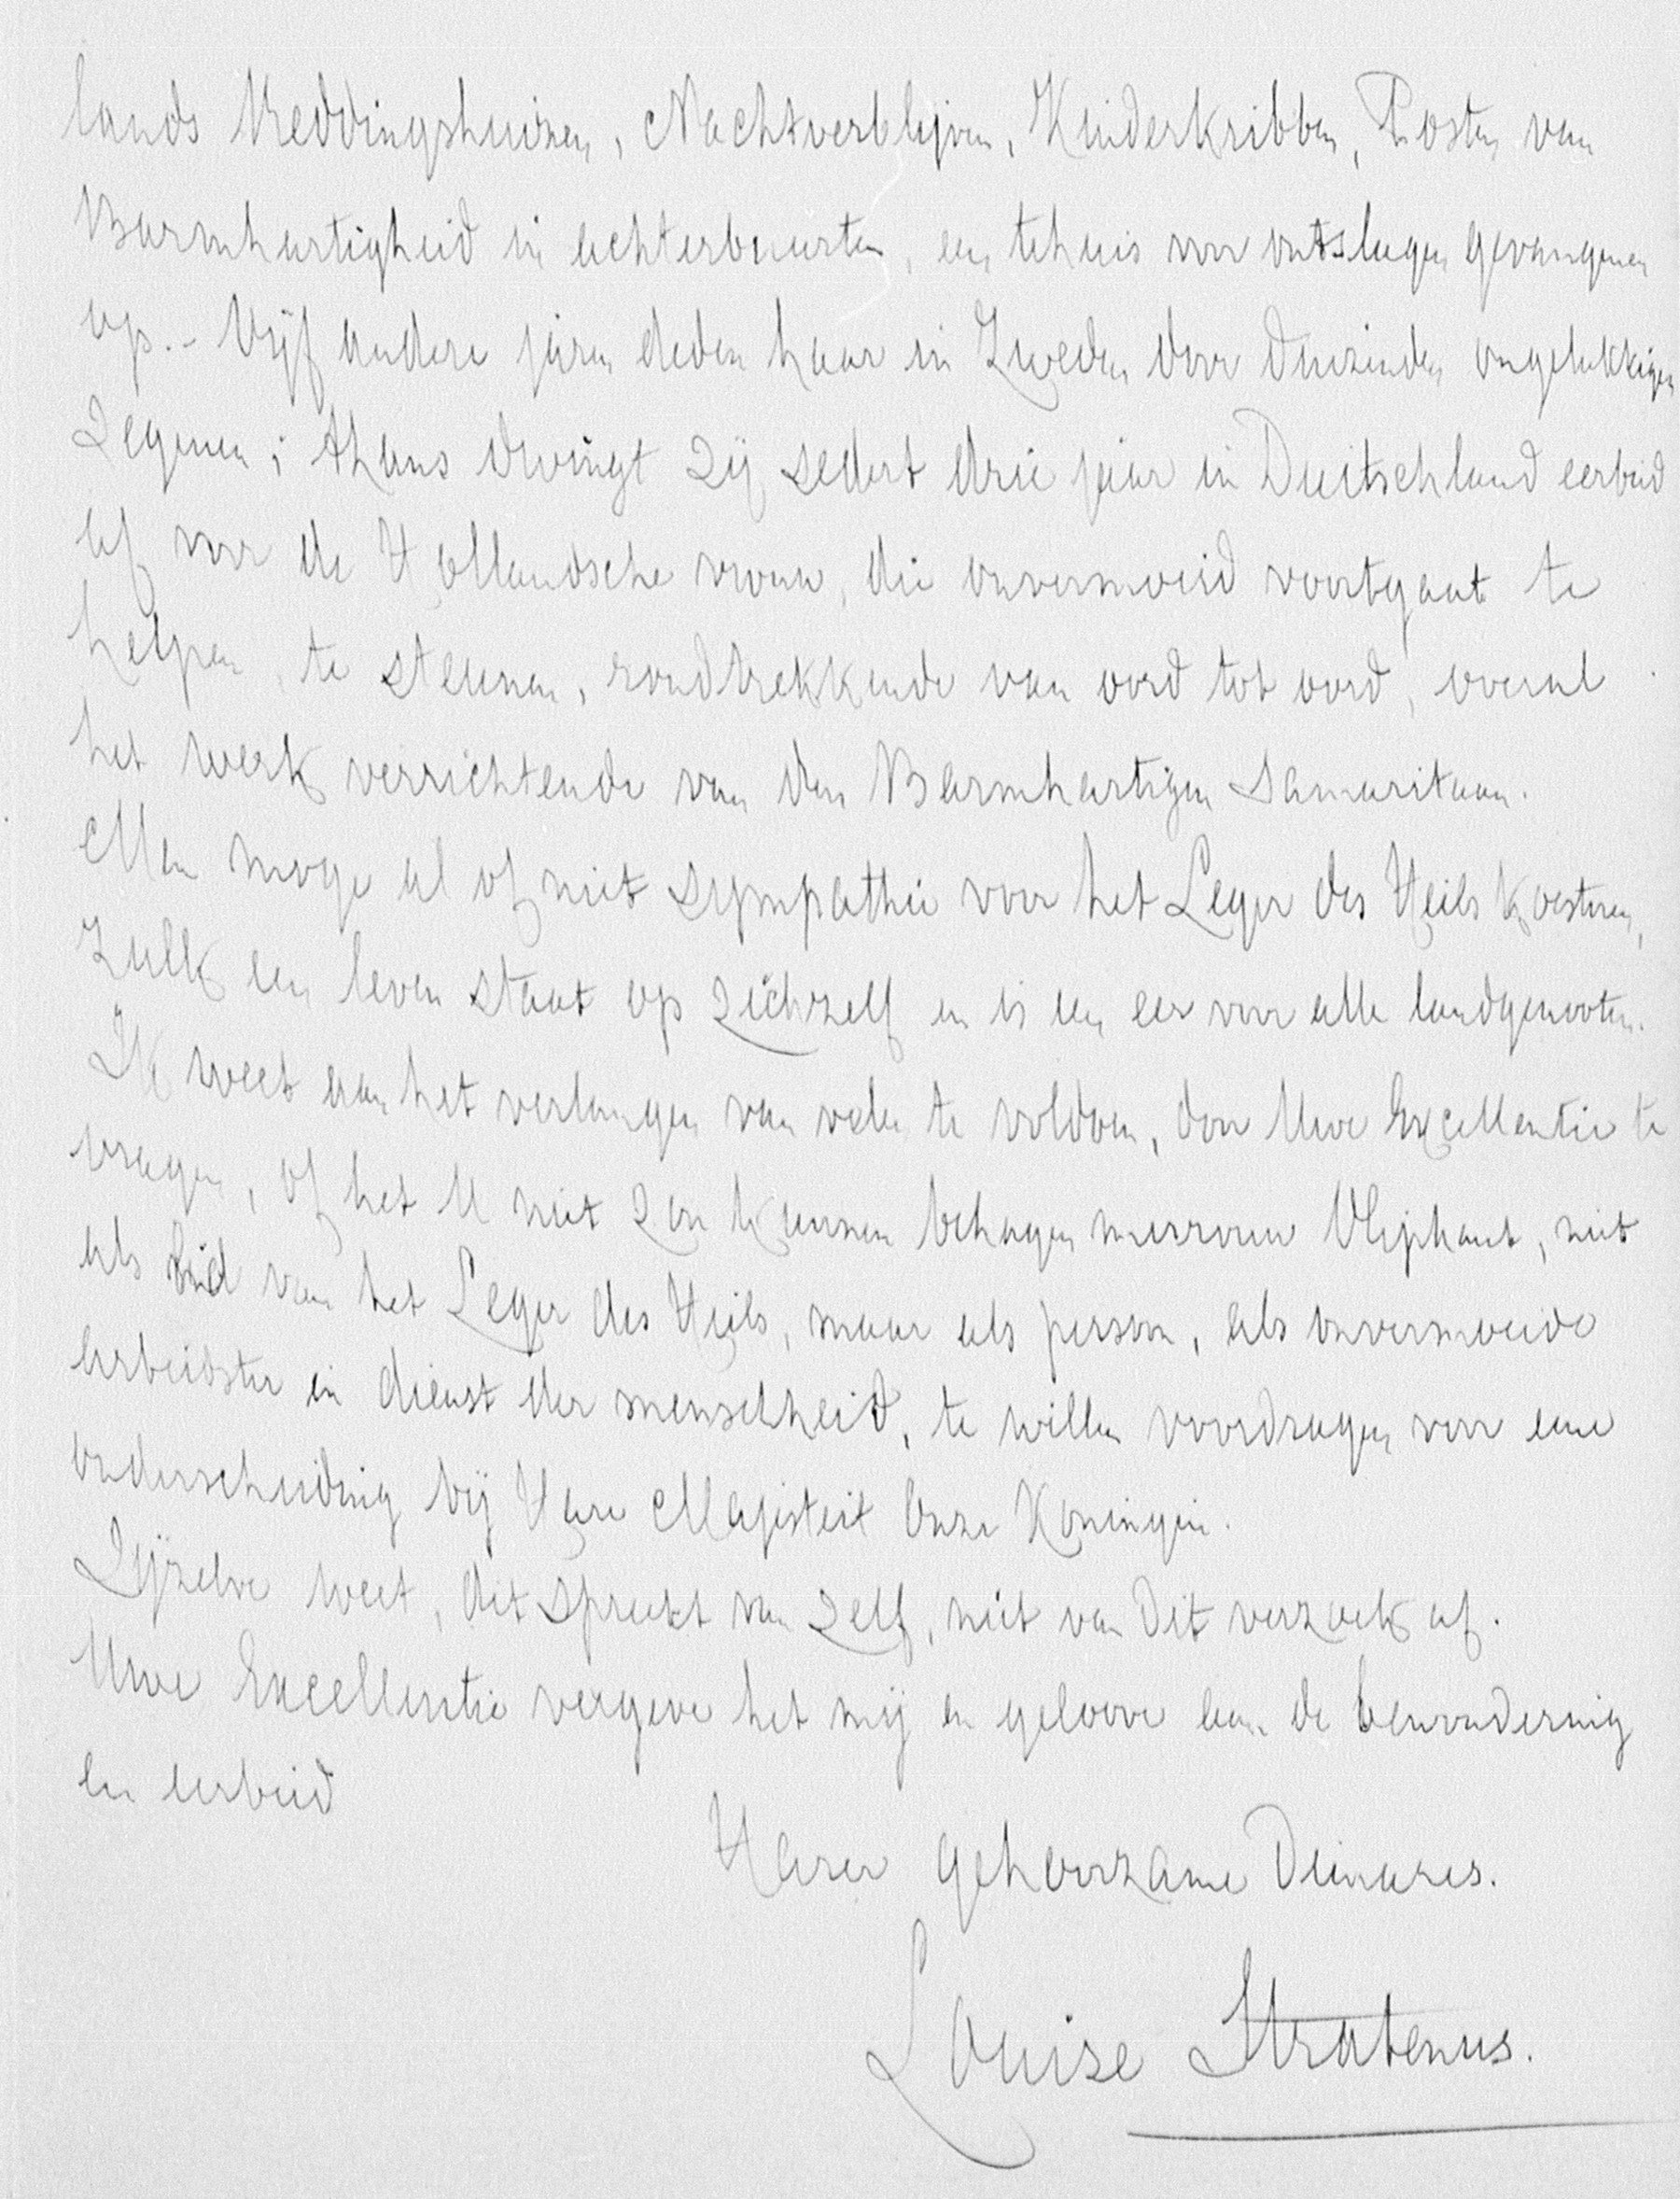 lands Reddingshuizen, Nachtverblijven, Kinderkribben, Posten van
Barmhartigheid in achterbuurten, een tehuis voor ontslagen gevangenen
op.- Vijf andere jaren deden haar in Zweden door duizenden ongelukkigen
zegenen; thans dwingt zij sedert drie jaar in Duitschland eerbied
af voor de Hollandsche vrouw, die onvermoeid voortgaat te
helpen, te steunen, rondtrekkende van oord tot oord, overal
het werk verrichtende van den Barmhartigen Samaritaan.
Men moge al of niet sympathie voor het Leger des Heils koesteren,
zulk een leven staat op zichzelf en is een eer voor alle landgenooten.
Ik weet aan het verlangen van velen te voldoen, door Uwe Excellentie te
vragen, of het U niet zou kunnen behagen mevrouw Oliphant, niet
als lid van het Leger des Heils, maar als persoon, als onvermoeide
arbeidster in dienst der menschheid, te willen voordragen voor eene
onderscheiding bij Hare Majesteit Onze Koningin.
Zijzelve weet, dit spreekt van zelf, niet van dit verzoek af.
Uwe Excellentie vergeve het mij en geloove aan de bewondering
en eerbied
Harer gehoorzame Dienares.
Louise Stratenus.